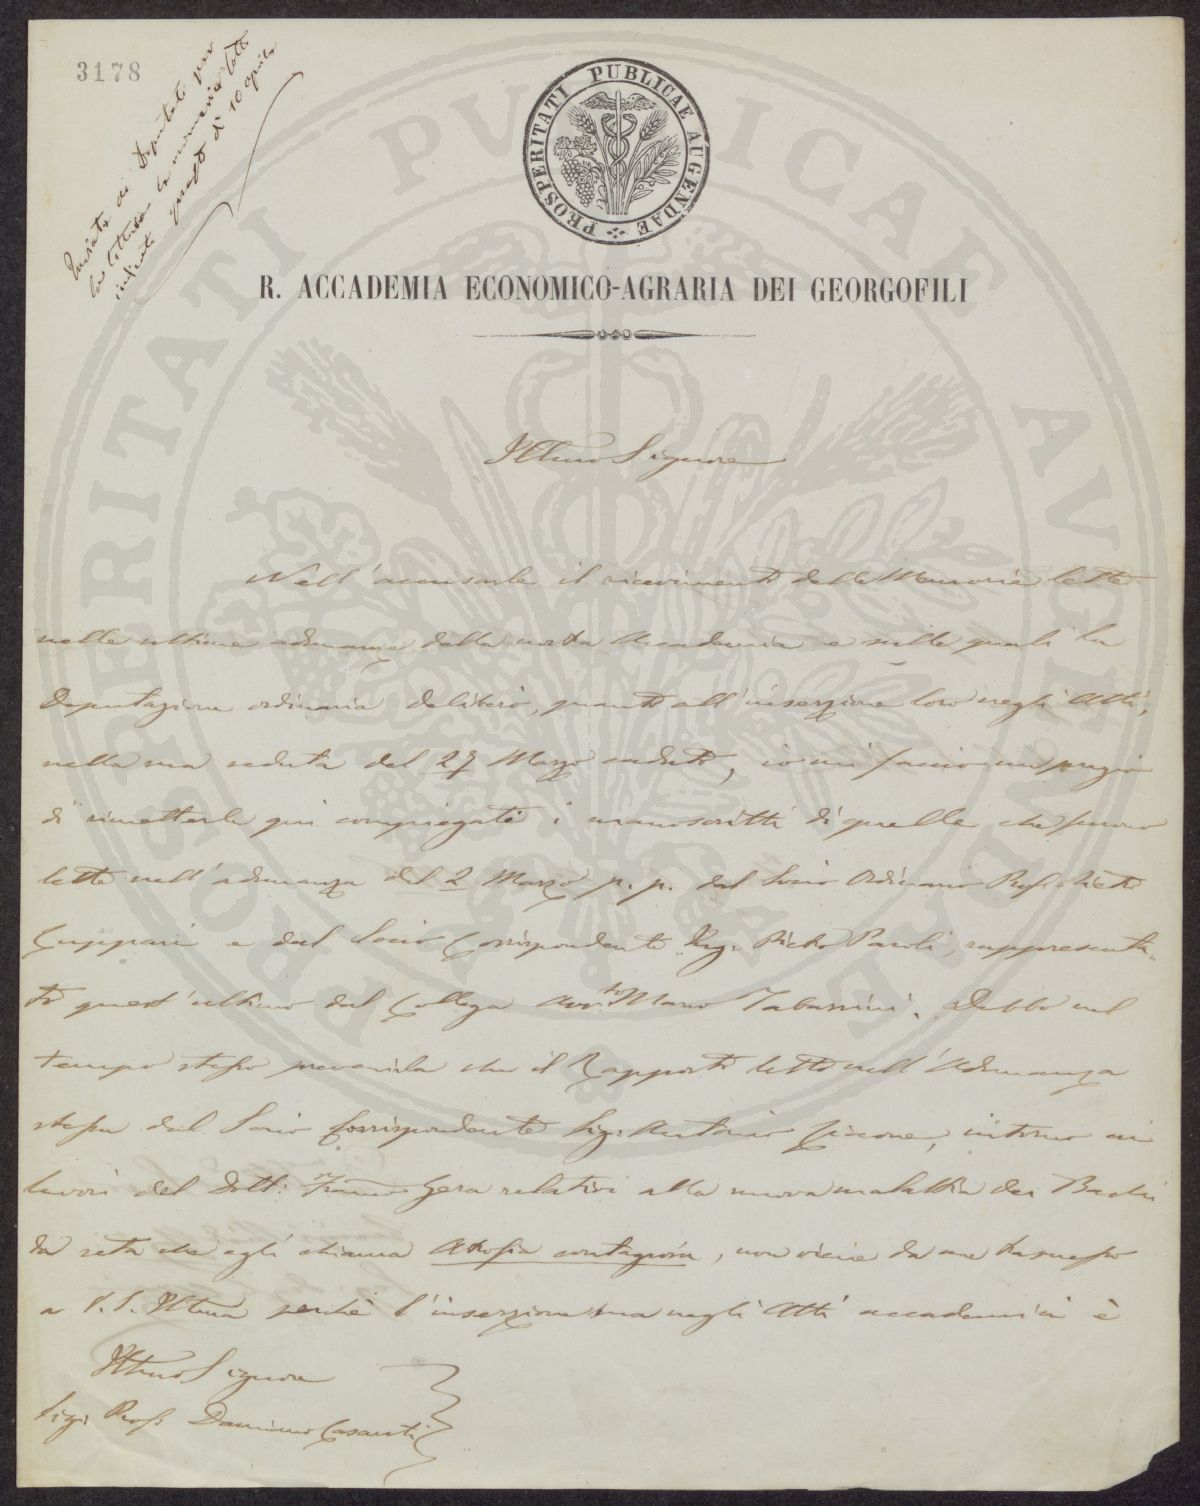 3178
Invitata di Deputati per
la lettura le memorie lette
indicate questo dì 10 aprile
PROSPERITATI PUBLICAE AUGENDAE
R. ACCADEMIA ECONOMICO-AGRARIA DEI GEORGOFILI
Illmo Signore
Nell'accusarle il ricevimento delle Memorie lette
nelle ultime adunanze della nostra Accademia e sulle quali la
Deputazione ordinaria deliberò, quanto all'inserzione loro negli Atti,
nella sua seduta del 27 Marzo caduto, io mi faccio un pregio
di rimetterle qui compiegati i manoscritti di quelle che furono
lette nell'adunanza del 2 Marzo p. p. dal Socio Ordinario Prof. Pietro
Cuppari e dal Socio Corrispondente Sig. Pietro Paroli, rappresenta-
to quest'ultimo dal Collega Avv.to Marco Tabarrini. Debbo nel
tempo stesso prevenirla che il Rapporto letto nell'Adunanza
stessa dal Socio Corrispondente Sig. Antonio Ciccone, intorno ai
lavori del Dott. Franco Gera relativi alla nuova malattia dei Bachi
da seta che egli chiama Atrofia contagiosa, non viene da me trasmesso
a V. S. Illma perchè l'inserzione sua negli Atti accademici è
Illmo Signore
Sig. Prof. Damiano Casanti